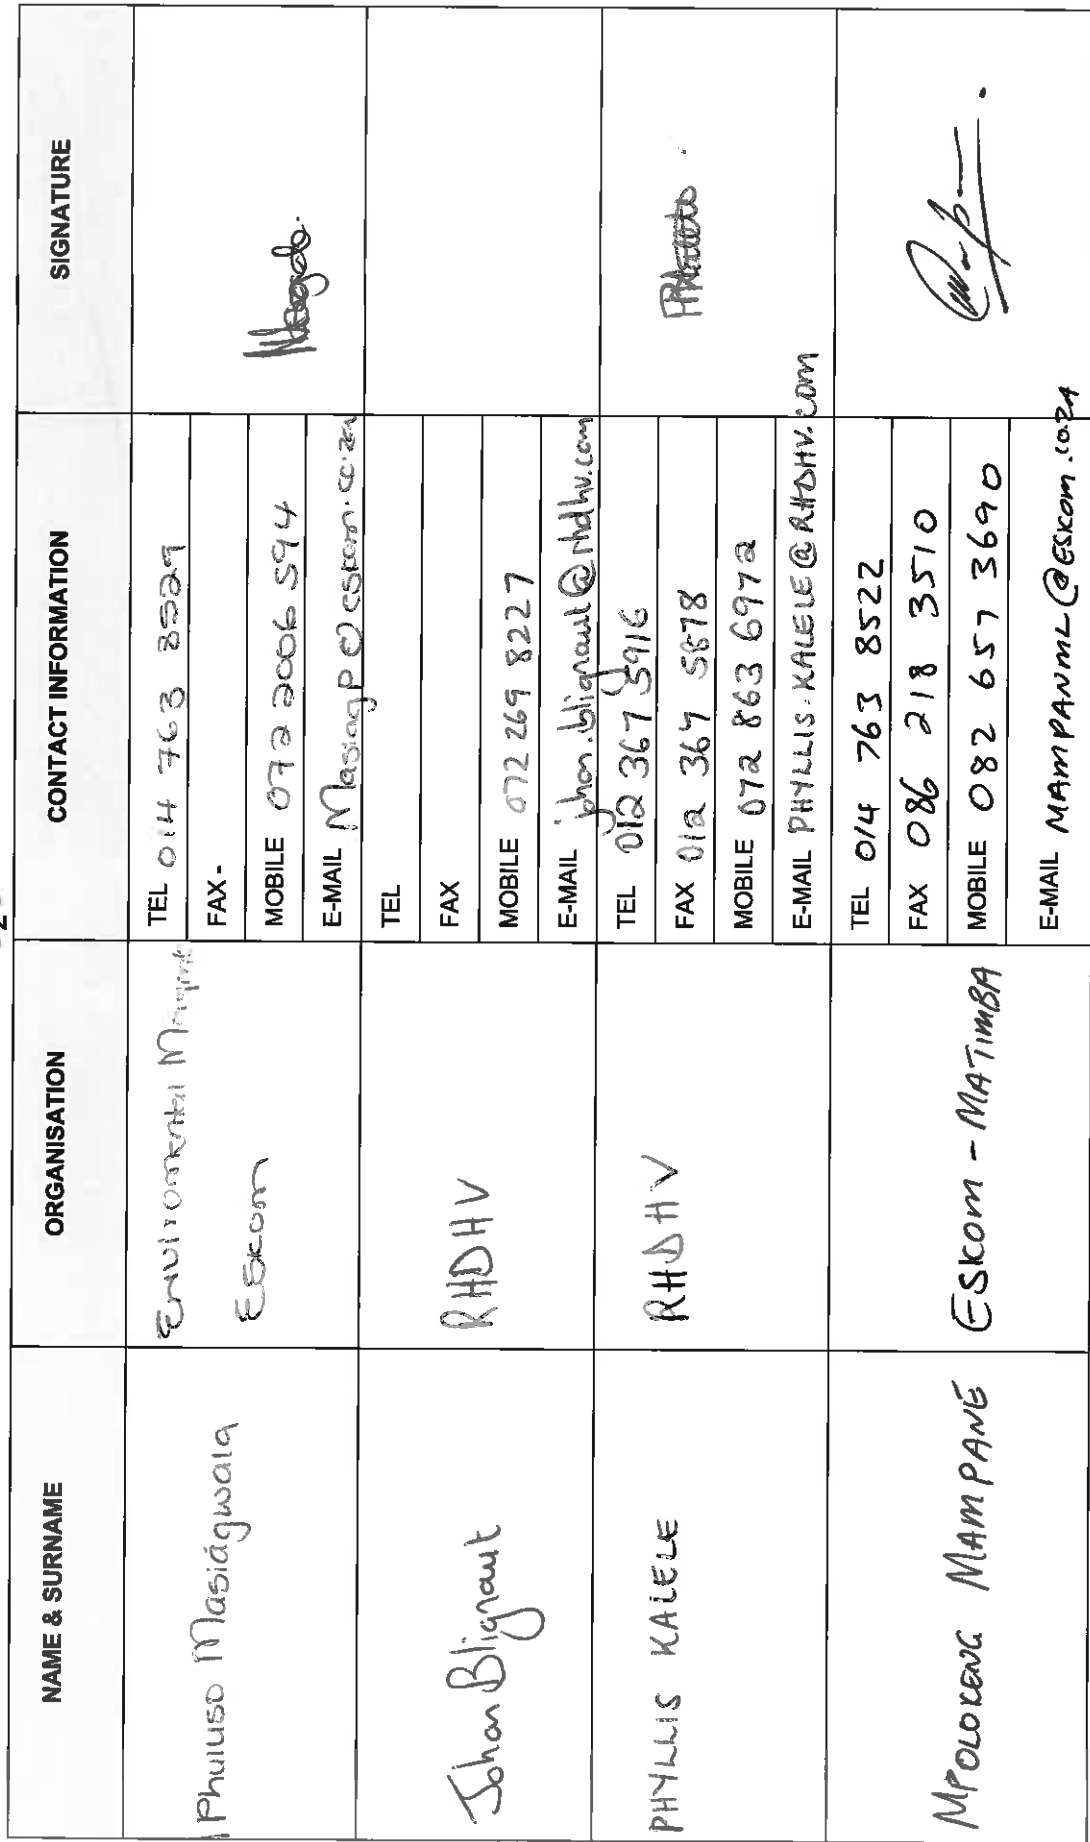 NAME & SURNAME
ORGANISATION
CONTACT INFORMATION
SIGNATURE
Phuluso Masiágwala
Enviromental
Eskom
TEL 014 763 8529
FAX -
MOBILE 072 2006 594
E-MAIL Masiagp@eskom.co.za
Johan Blignaut
RHDHV
TEL
FAX
MOBILE 072 269 8227
E-MAIL johan.blignaut@rhdhv.com
PHYLLIS KALELE
RHDHV
TEL 012 367 5916
FAX 012 367 5878
MOBILE 072 863 6972
E-MAIL PHYLLIS.KALELE@RHDHV.COM
MPOLOKENG MAMPANE
ESKOM - MATIMBA
TEL 014 763 8522
FAX 086 218 3510
MOBILE 082 657 3690
E-MAIL MAMPANML@ESKOM.CO.ZA